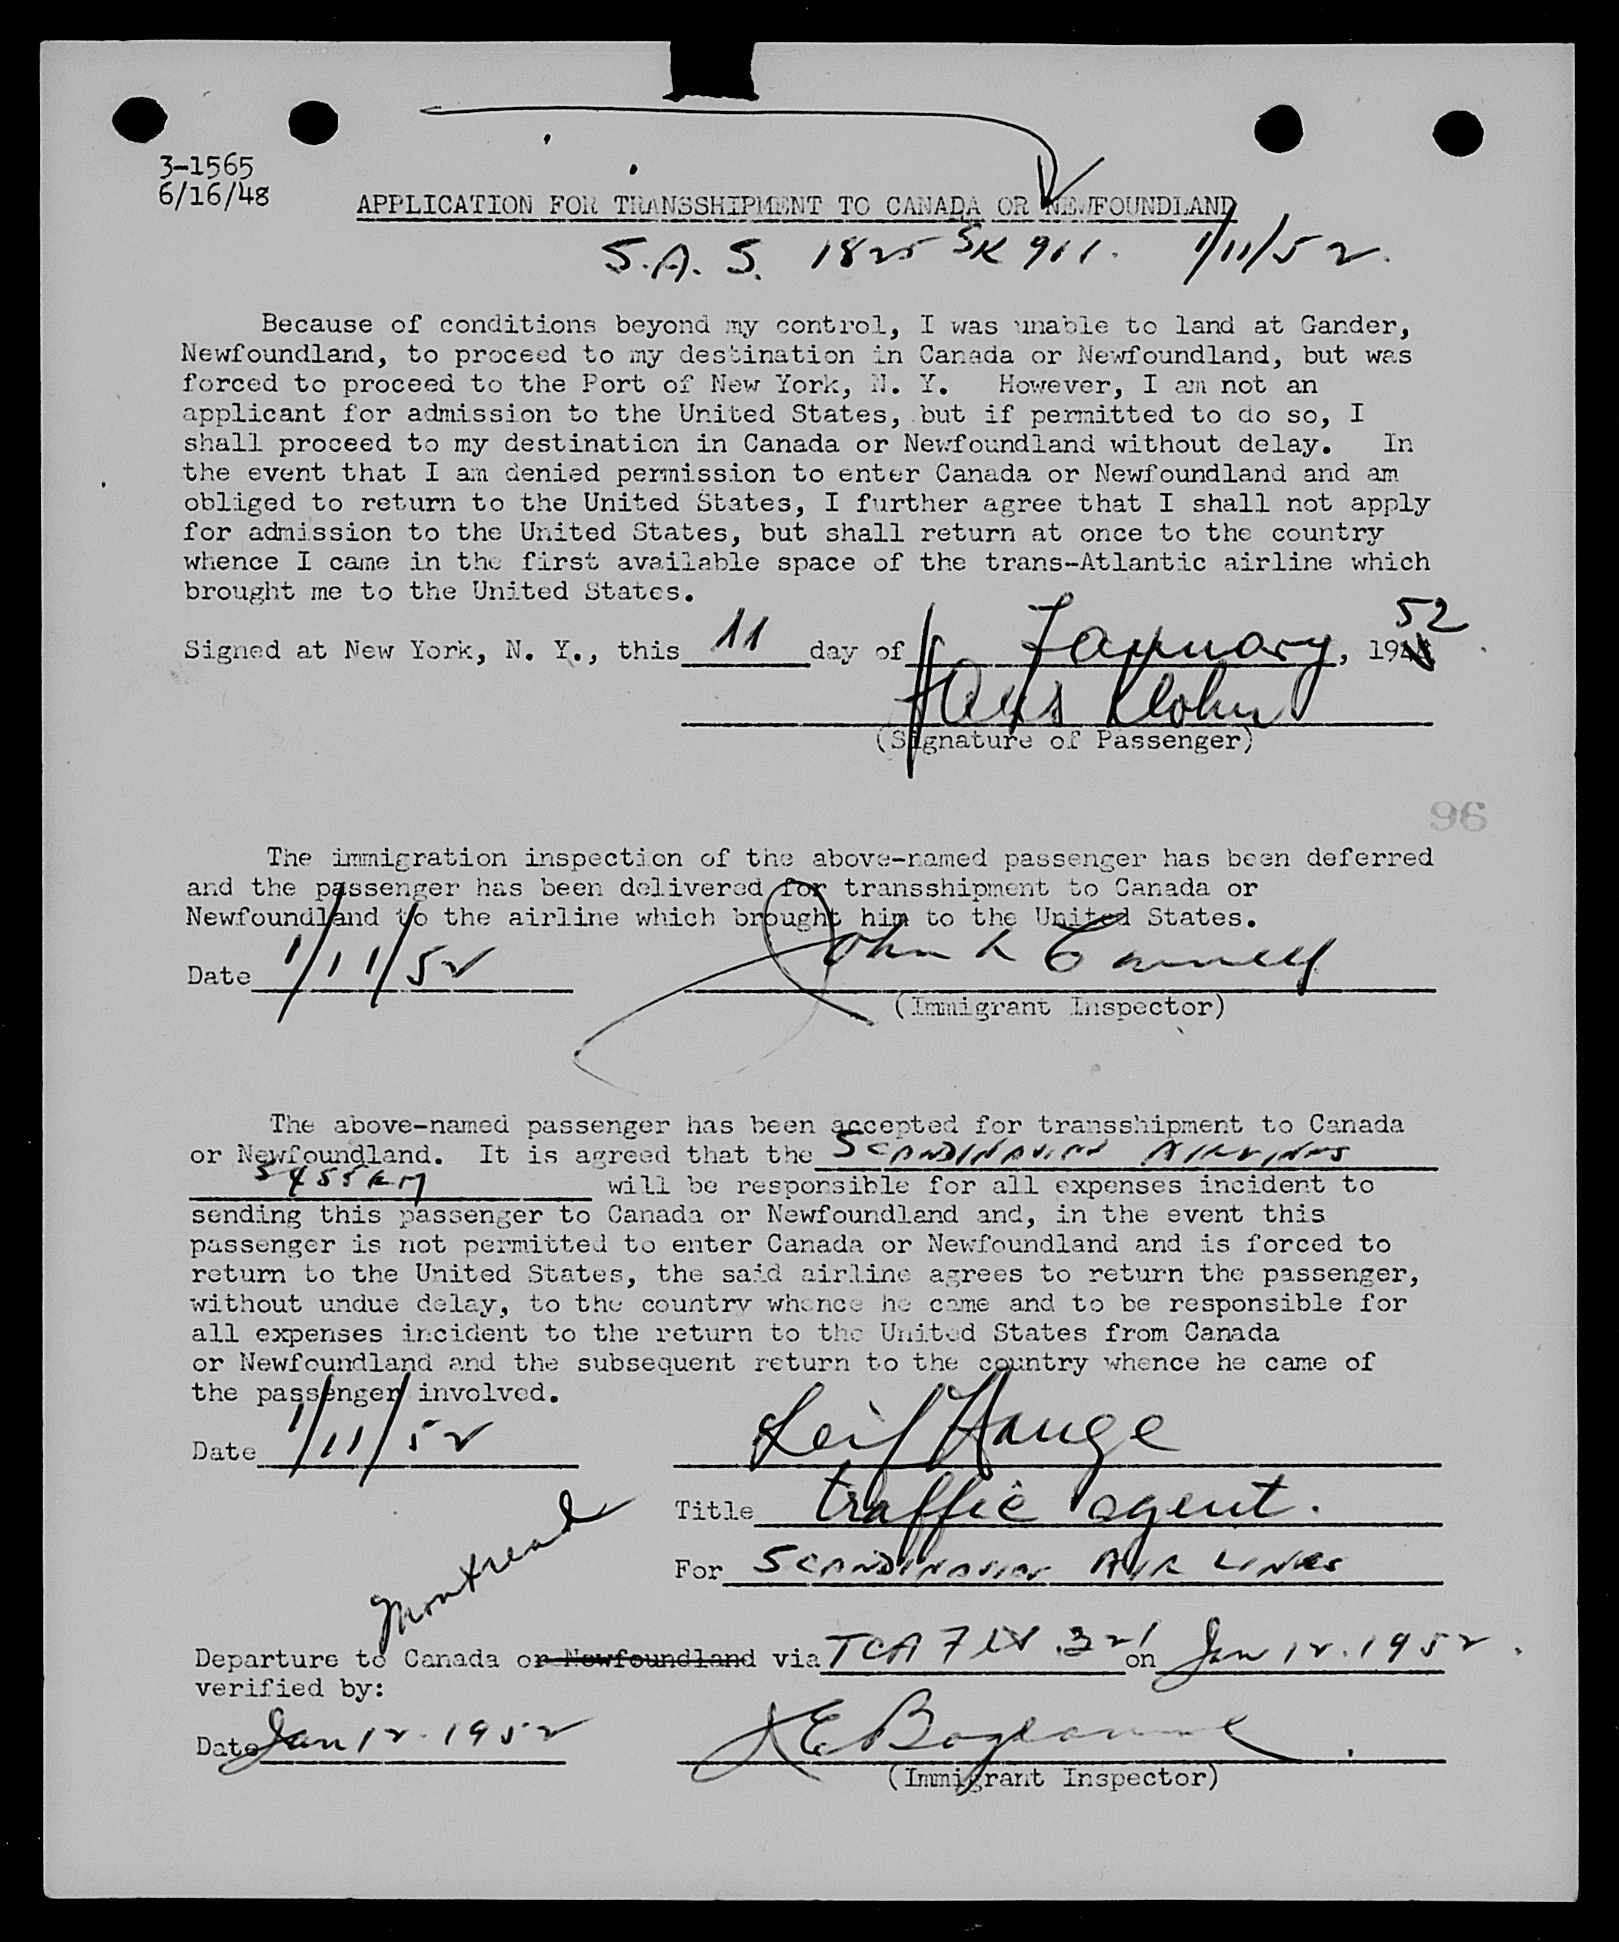 3-1565
6/16/48
APPLICATION FOR TRANSSHIPMENT TO CANADA OR NEWFOUNDLAND
S.A.S. 1825 SK 911. 1/11/52.
Because of conditions beyond my control, I was unable to land at Gander,
Newfoundland, to proceed to my destination in Canada or Newfoundland, but was
forced to proceed to the Port of New York, N. Y. However, I am not an
applicant for admission to the United States, but if permitted to do so, I
shall proceed to my destination in Canada or Newfoundland without delay. In
the event that I am denied permission to enter Canada or Newfoundland and am
obliged to return to the United States, I further agree that I shall not apply
for admission to the United States, but shall return at once to the country
whence I came in the first available space of the trans-Atlantic airline which
brought me to the United States.
52
Signed at New York, N. Y., this 11 day of January, 194
Hans Klohn
(Signature of Passenger)
96
The immigration inspection of the above-named passenger has been deferred
and the passenger has been delivered for transshipment to Canada or
Newfoundland to the airline which brought him to the United States.
Date 1/11/52 John L
(Immigrant Inspector)
The above-named passenger has been accepted for transshipment to Canada
or Newfoundland. It is agreed that the SCANDINAVIAN AIRLINES
SYSTEM will be responsible for all expenses incident to
sending this passenger to Canada or Newfoundland and, in the event this
passenger is not permitted to enter Canada or Newfoundland and is forced to
return to the United States, the said airline agrees to return the passenger,
without undue delay, to the country whence he came and to be responsible for
all expenses incident to the return to the United States from Canada
or Newfoundland and the subsequent return to the country whence he came of
the passenger involved.
Date 1/11/52 Leif Hauge
Title traffic agent.
For SCANDINAVIAN AIR LINES
Montreal
Departure to Canada or Newfoundland via TCA 321 on Jan 12. 1952.
verified by:
Date Jan 12. 1952
(Immigrant Inspector)